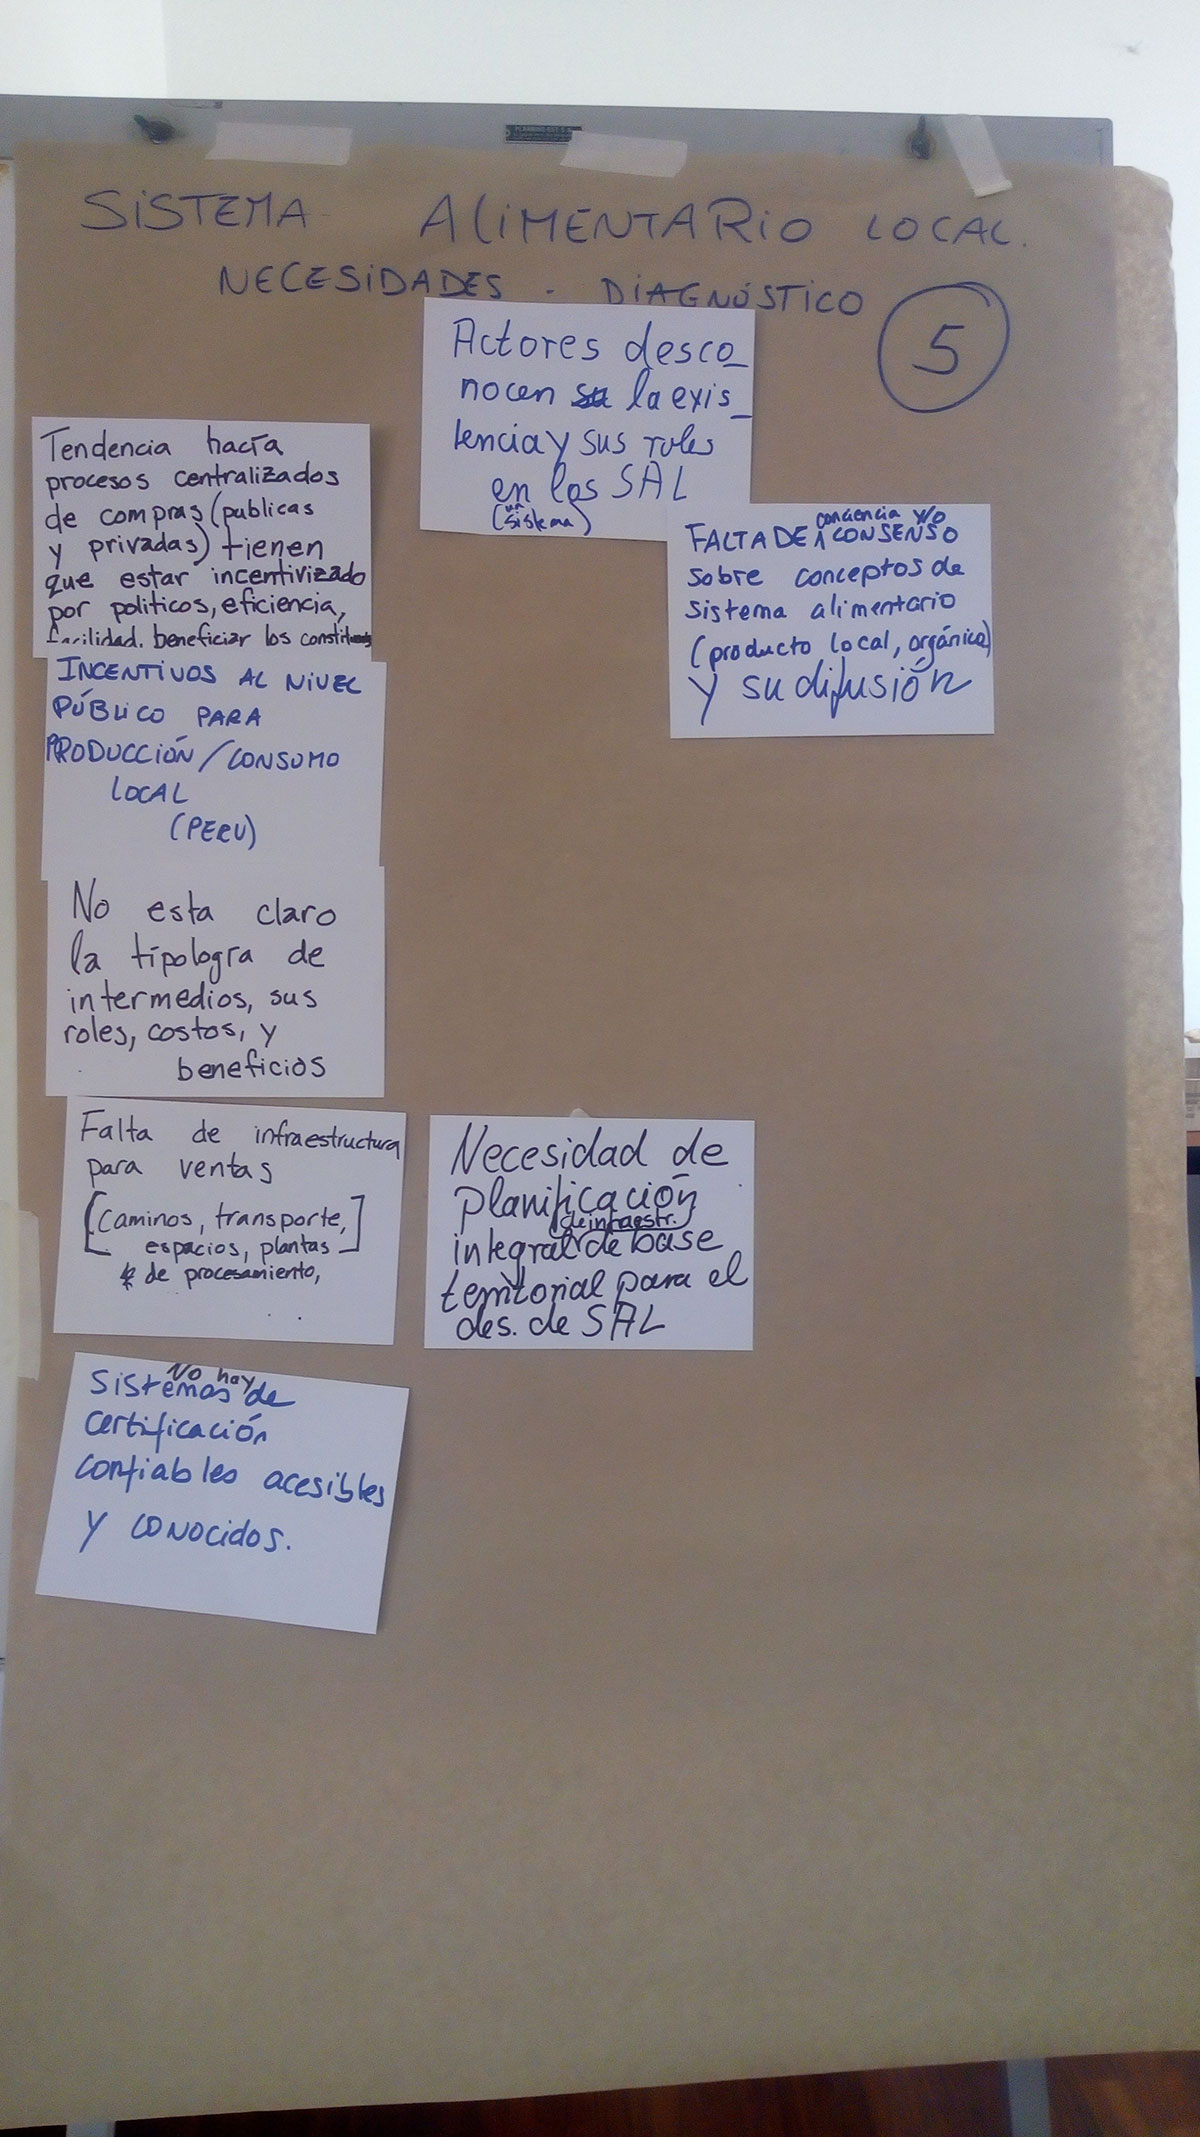 SISTEMA ALIMENTARIO LOCAL.
NECESIDADES - DIAGNÓSTICO
5
Actores desco_
nocen la exis_
tencia y sus roles
en los SAL
(un sistema)
FALTA DE conciencia y/o CONSENSO
sobre conceptos de
sistema alimentario
(producto local, orgánico)
y su difusión
Tendencia hacía
procesos centralizados
de compras (publicas
y privadas) tienen
que estar incentivizado
por politicos, eficiencia,
facilidad, beneficiar los
INCENTIVOS AL NIVEL
PÚBLICO PARA
PRODUCCIÓN/CONSUMO
LOCAL
(PERU)
No esta claro
la tipología de
intermedios, sus
roles, costos, y
beneficios
Falta de infraestructura
para ventas
[caminos, transporte,
espacios, plantas]
de procesamiento,
Necesidad de
planificación
integral de infraestr. de base
territorial para el
des. de SAL
No hay
sistemas de
certificación
confiables acesibles
y conocidos.